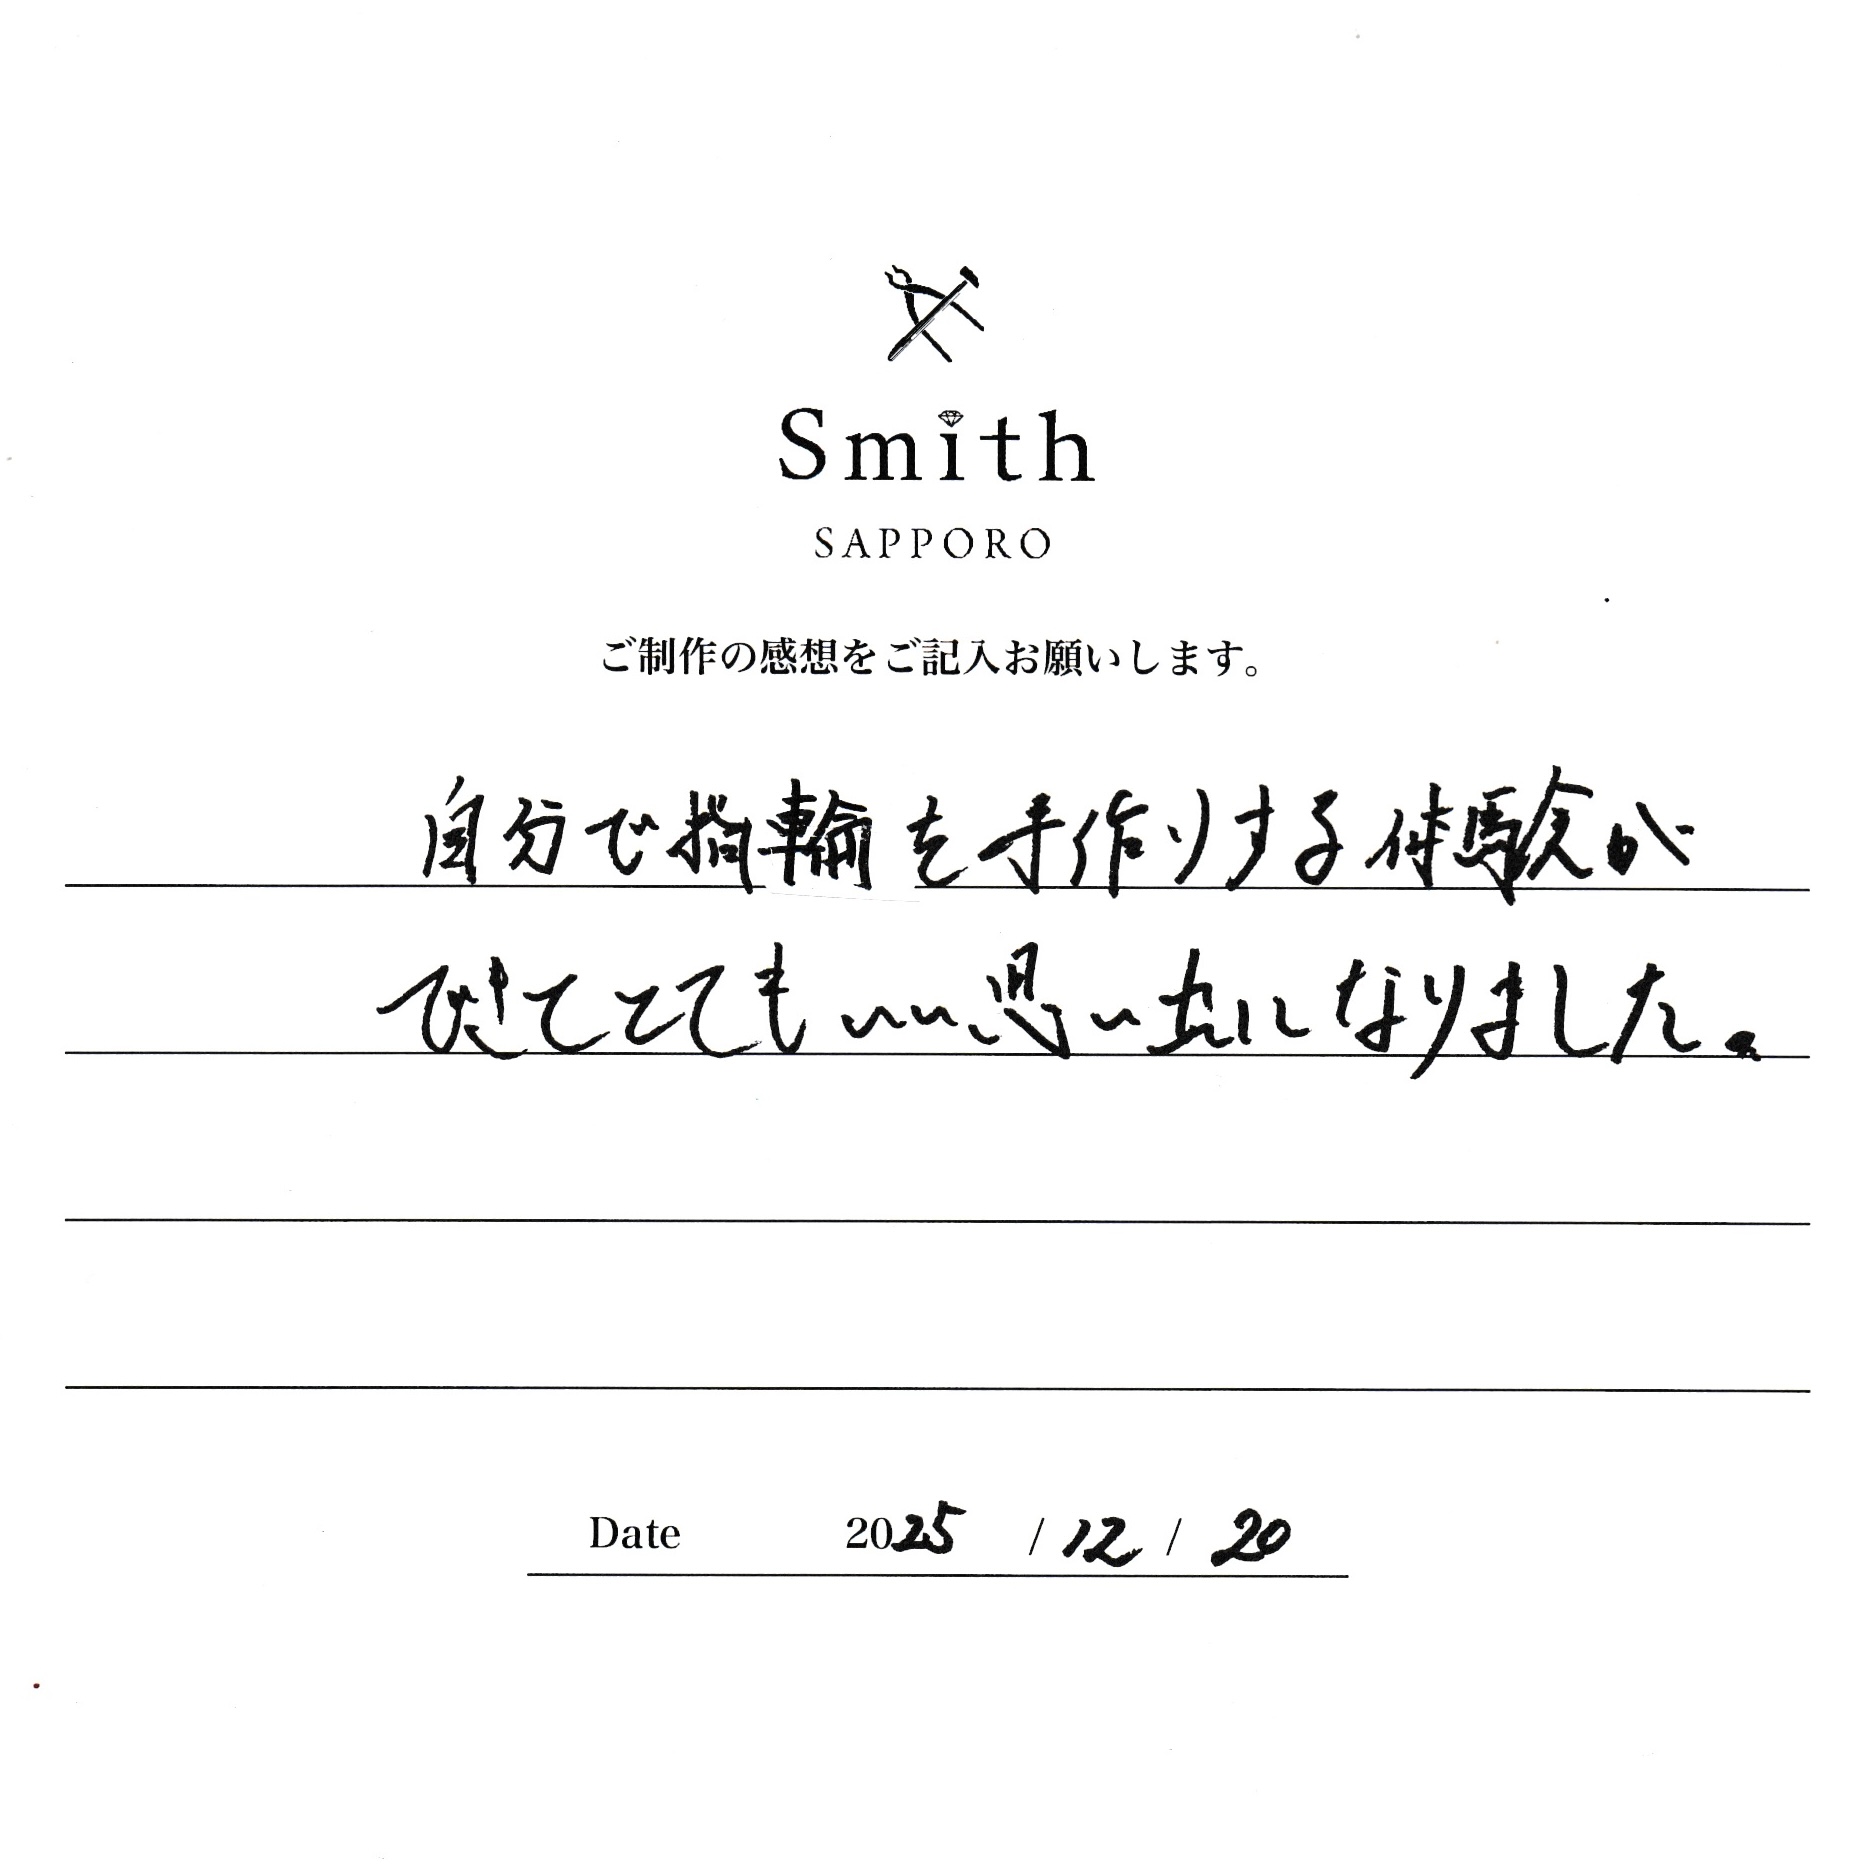 Smith
SAPPORO
ご制作の感想をご記入お願いします。
自分で指輪を手作りする体験が
できてとてもいい思い出になりました。
Date 2025 / 12 / 20